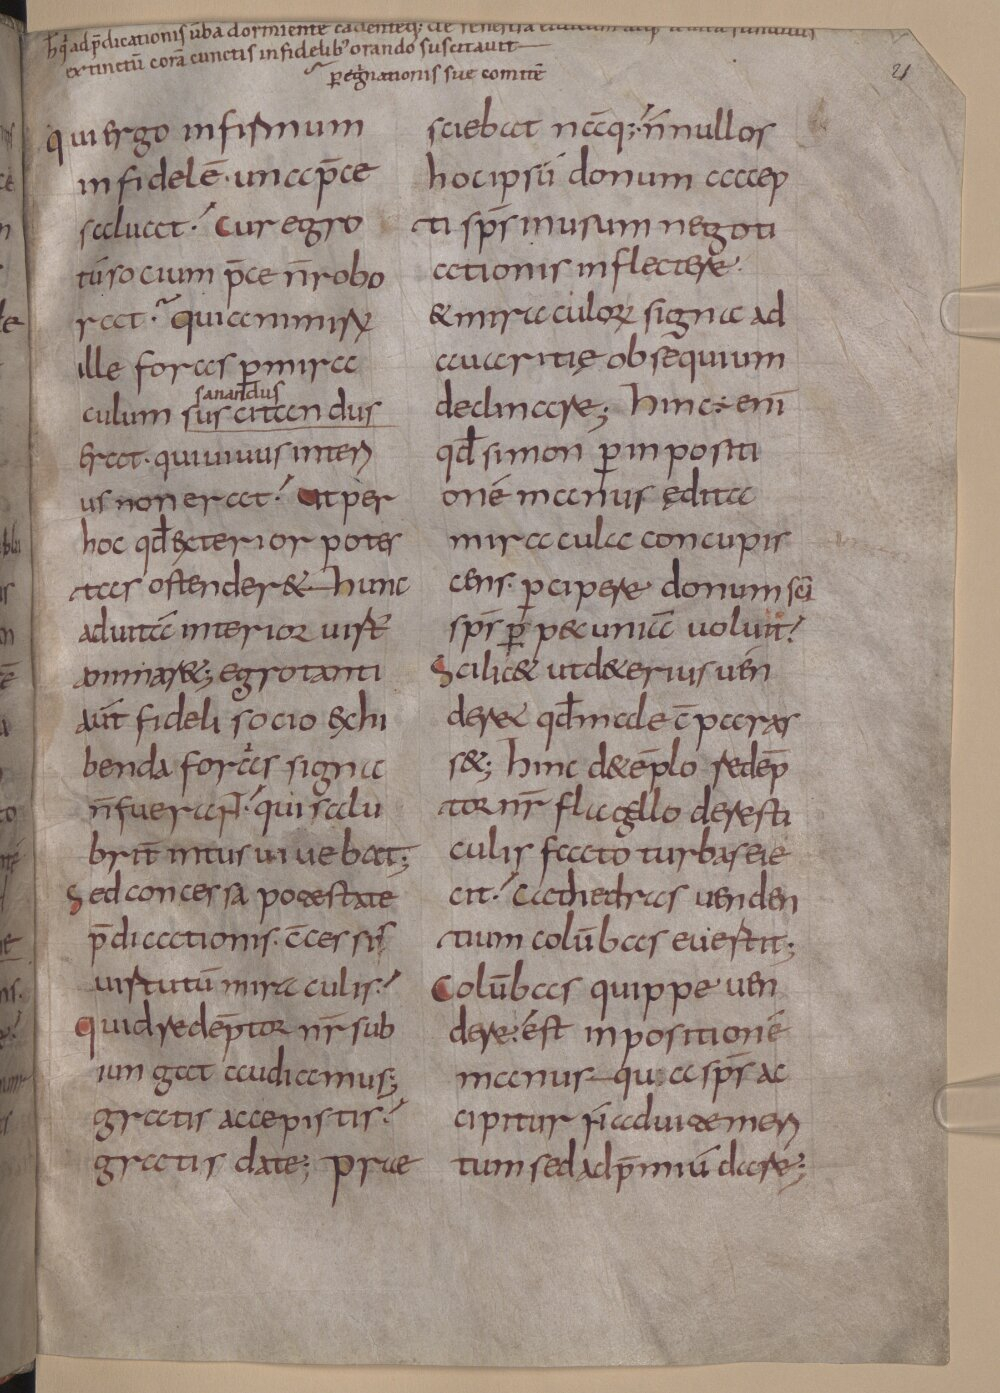 extinctū corā cunctis infidelib' orando suscitauit
peregrinationis sue comitē
21
qui ergo infirmum
infidelē · una p̄ce
saluat? Cur egro
tū socium p̄ce n̄ robo
rat? quia nimirū
ille foras p̱ mira
sanandus
culum suscitandus
erat · qui uiuus interi
us non erat? Ut per
hoc qđ exterior potes
tas ostender& hunc
ad uitā interior uirt̄
animar&; egrotanti
aūt fideli socio exhi
benda foras signa
n̄ fuerant? qui salu
brit̄ intus uiuebat;
Sed concessa potestate
p̄dicationis · c̄cessis
uirtutū miraculis?
quid redēptor nr̄ sub
iungat audiamus;
gratis accepistis?
gratis date; Prae
sciebat nāq;? n̄nullos
hoc ipsū donum accep
ti sp̄s in usum negoti
ationis inflectere·
& miraculor̄ signa ad
auaritię obsequium
declinare; Hinc ÷ eni
qđ simon p̱ inpositi
onē manus ędita
miracula concupis
cens · p̱cipere donum sc̄i
sp̄s p̱ pecuniā uoluit?
Scilic& ut d&erius uen
deret qđ male c̄paras
s&; Hinc d& ēplo redēp
tor nr̄ flagello de resti
culis facto turbas eie
cit? Cathedras uenden
tium colūbas euertit;
Colūbas quippe uen
dere: ést inpositionē
manus qua sp̄s ac
cipitur n̄ ad uitę meri
tum sed ad p̄miū dare;